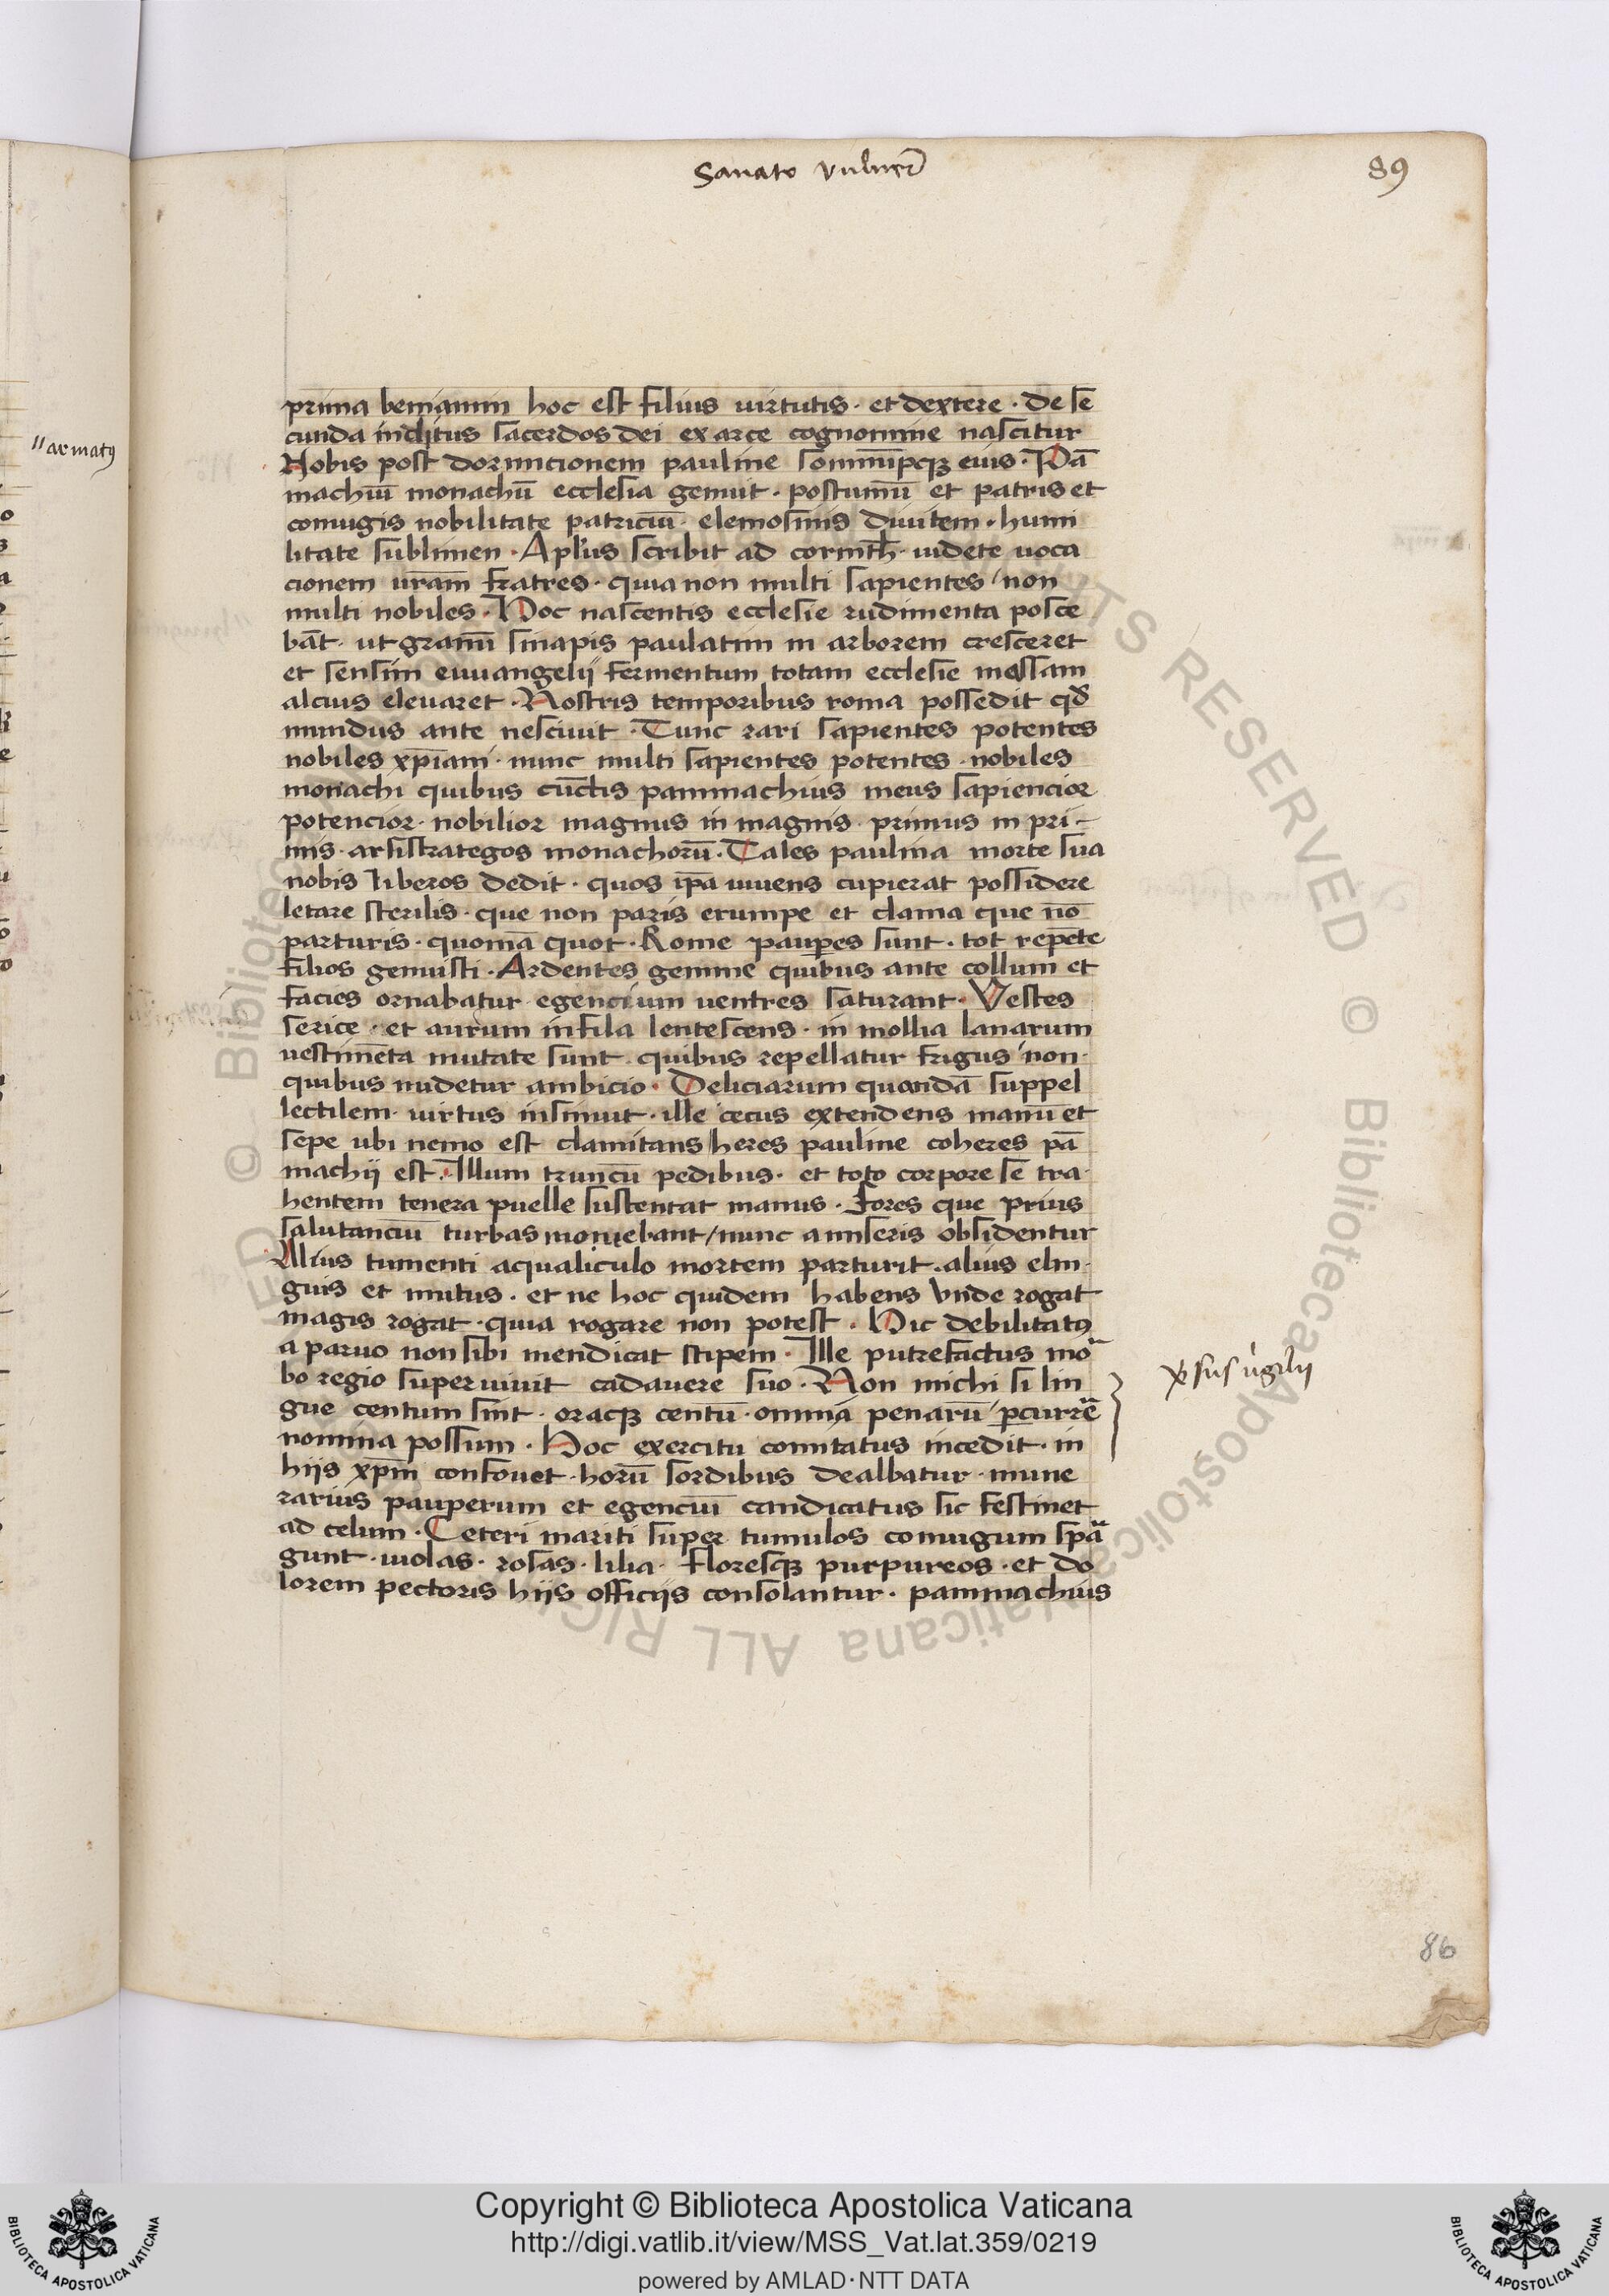 Sanato vulner̄
89
"armatꝰ
prima beniamin hoc est filius uirtutis · et dextere · de se
cunda inclitus sacerdos dei ex arce cognomine nascitur
Nobis post dormicionem pauline sominiꝙꝫ eius · Pā
machiū monachū ecclesia genuit · postumū et patris et
coniugis nobilitate patriciū · elemosinis diuitem · humi
litate sublimen · Apl's scribit ad corinth̄ · uidete uoca
cionem ur̄am fratres · quia non multi sapientes / non
multi nobiles · Hoc nascentis ecclesie rudimenta posce
bāt · ut granū sinapis paulatim in arborem cresceret
et sensim euuangelij fermentum totam ecclesie massam
alcius eleuaret · Nostris temporibus roma possedit qd̄
mundus ante nesciuit · Tunc rari sapientes potentes
nobiles xp̄iani · nunc multi sapientes potentes · nobiles
monachi quibus cūctis pammachius meus sapiencior
potencior · nobilior magnus in magnis · primus in pri-
mis · arsistrategos monachorū · Tales paulina morte sua
nobis liberos dedit · quos ip̄a uiuens cupierat possidere
letare sterilis · que non paris erumpe et clama que nō
parturis · quoniā quot · Rome paup̱es sunt · tot repēte
filios genuisti · Ardentes gemme quibus ante collum et
facies ornabatur egencium uentres saturant · Vestes
serice · et aurum in fila lentescens · in mollia lanarum
uestimēta mutate sunt · quibus repellatur frigus / non ·
quibus nudetur ambicio · Deliciarum quandā suppel
lectilem · uirtus insinuit · ille cecus extendens manū et
sepe ubi nemo est clamitans heres pauline coheres pā
machij est · Illum truncū pedibus · et toto corpore se tra·
hentem tenera puelle sustentat manus · Fores que prius
salutanciū turbas mouebant / nunc a miseris obsidentur
Alius tumenti aqualiculo mortem parturit · alius elin·
guis et mutus · et ne hoc quidem habens vnde rogat
magis rogat · quia rogare non potest · Hic debilitatꝰ
a paruo non sibi mendicat stipem · Ille putrefactus mo
bo regio superuiuit cadauere suo · Non michi si lin
gue centum sint · oraqꝫ centū · omnia penarū / p̱curre
nomina possum · Hoc exercitu comitatus incedit · in
hijs xp̄m confouet · horū sordibus dealbatur · mune
rarius pauperum et egenciū candicatus sic festinet
ad celum · Ceteri mariti super tumulos coniugum sp̄a
gunt · uiolas · rosas · lilia · floresqꝫ purpureos · et do
lorem pectoris hijs officijs consolantur · pammachius
v̓sus u̓gilij
86
Copyright © Biblioteca Apostolica Vaticana
http://digi.vatlib.it/view/MSS_Vat.lat.359/0219
powered by AMLAD·NTT DATA